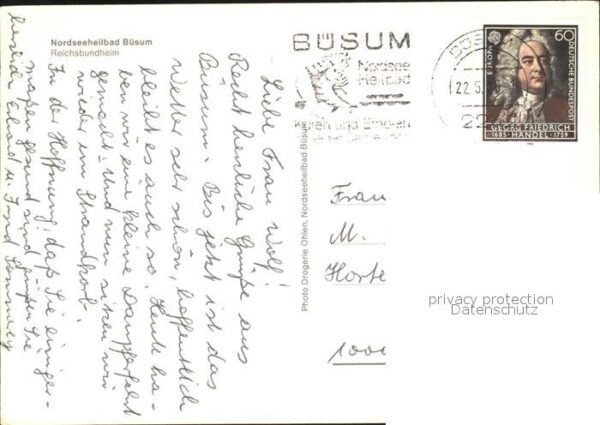 Nordseeheilbad Büsum
Reichsbundheim
Liebe Frau Wolf!
Recht herzliche Grüße aus
Büsum. Bis jetzt ist das
Wetter sehr schön, hoffentlich
bleibt es auch so. Heute ha-
ben wir eine kleine Dampferfahrt
gemacht. Und nun sitzen wir
wieder im Strandkorb.
In der Hoffnung, daß Sie einiger-
maßen gesund sind, grüßen Sie
herzlich u.
Photo Drogerie Ohlen, Nordseeheilbad Büsum
BÜSUM
Nordsee
heilbad
22.5.
22
60
EUROPA
DEUTSCHE BUNDESPOST
GEORG FRIEDRICH
1685 HÄNDEL 1759
Frau
M.
Horte
1000
privacy protection
Datenschutz